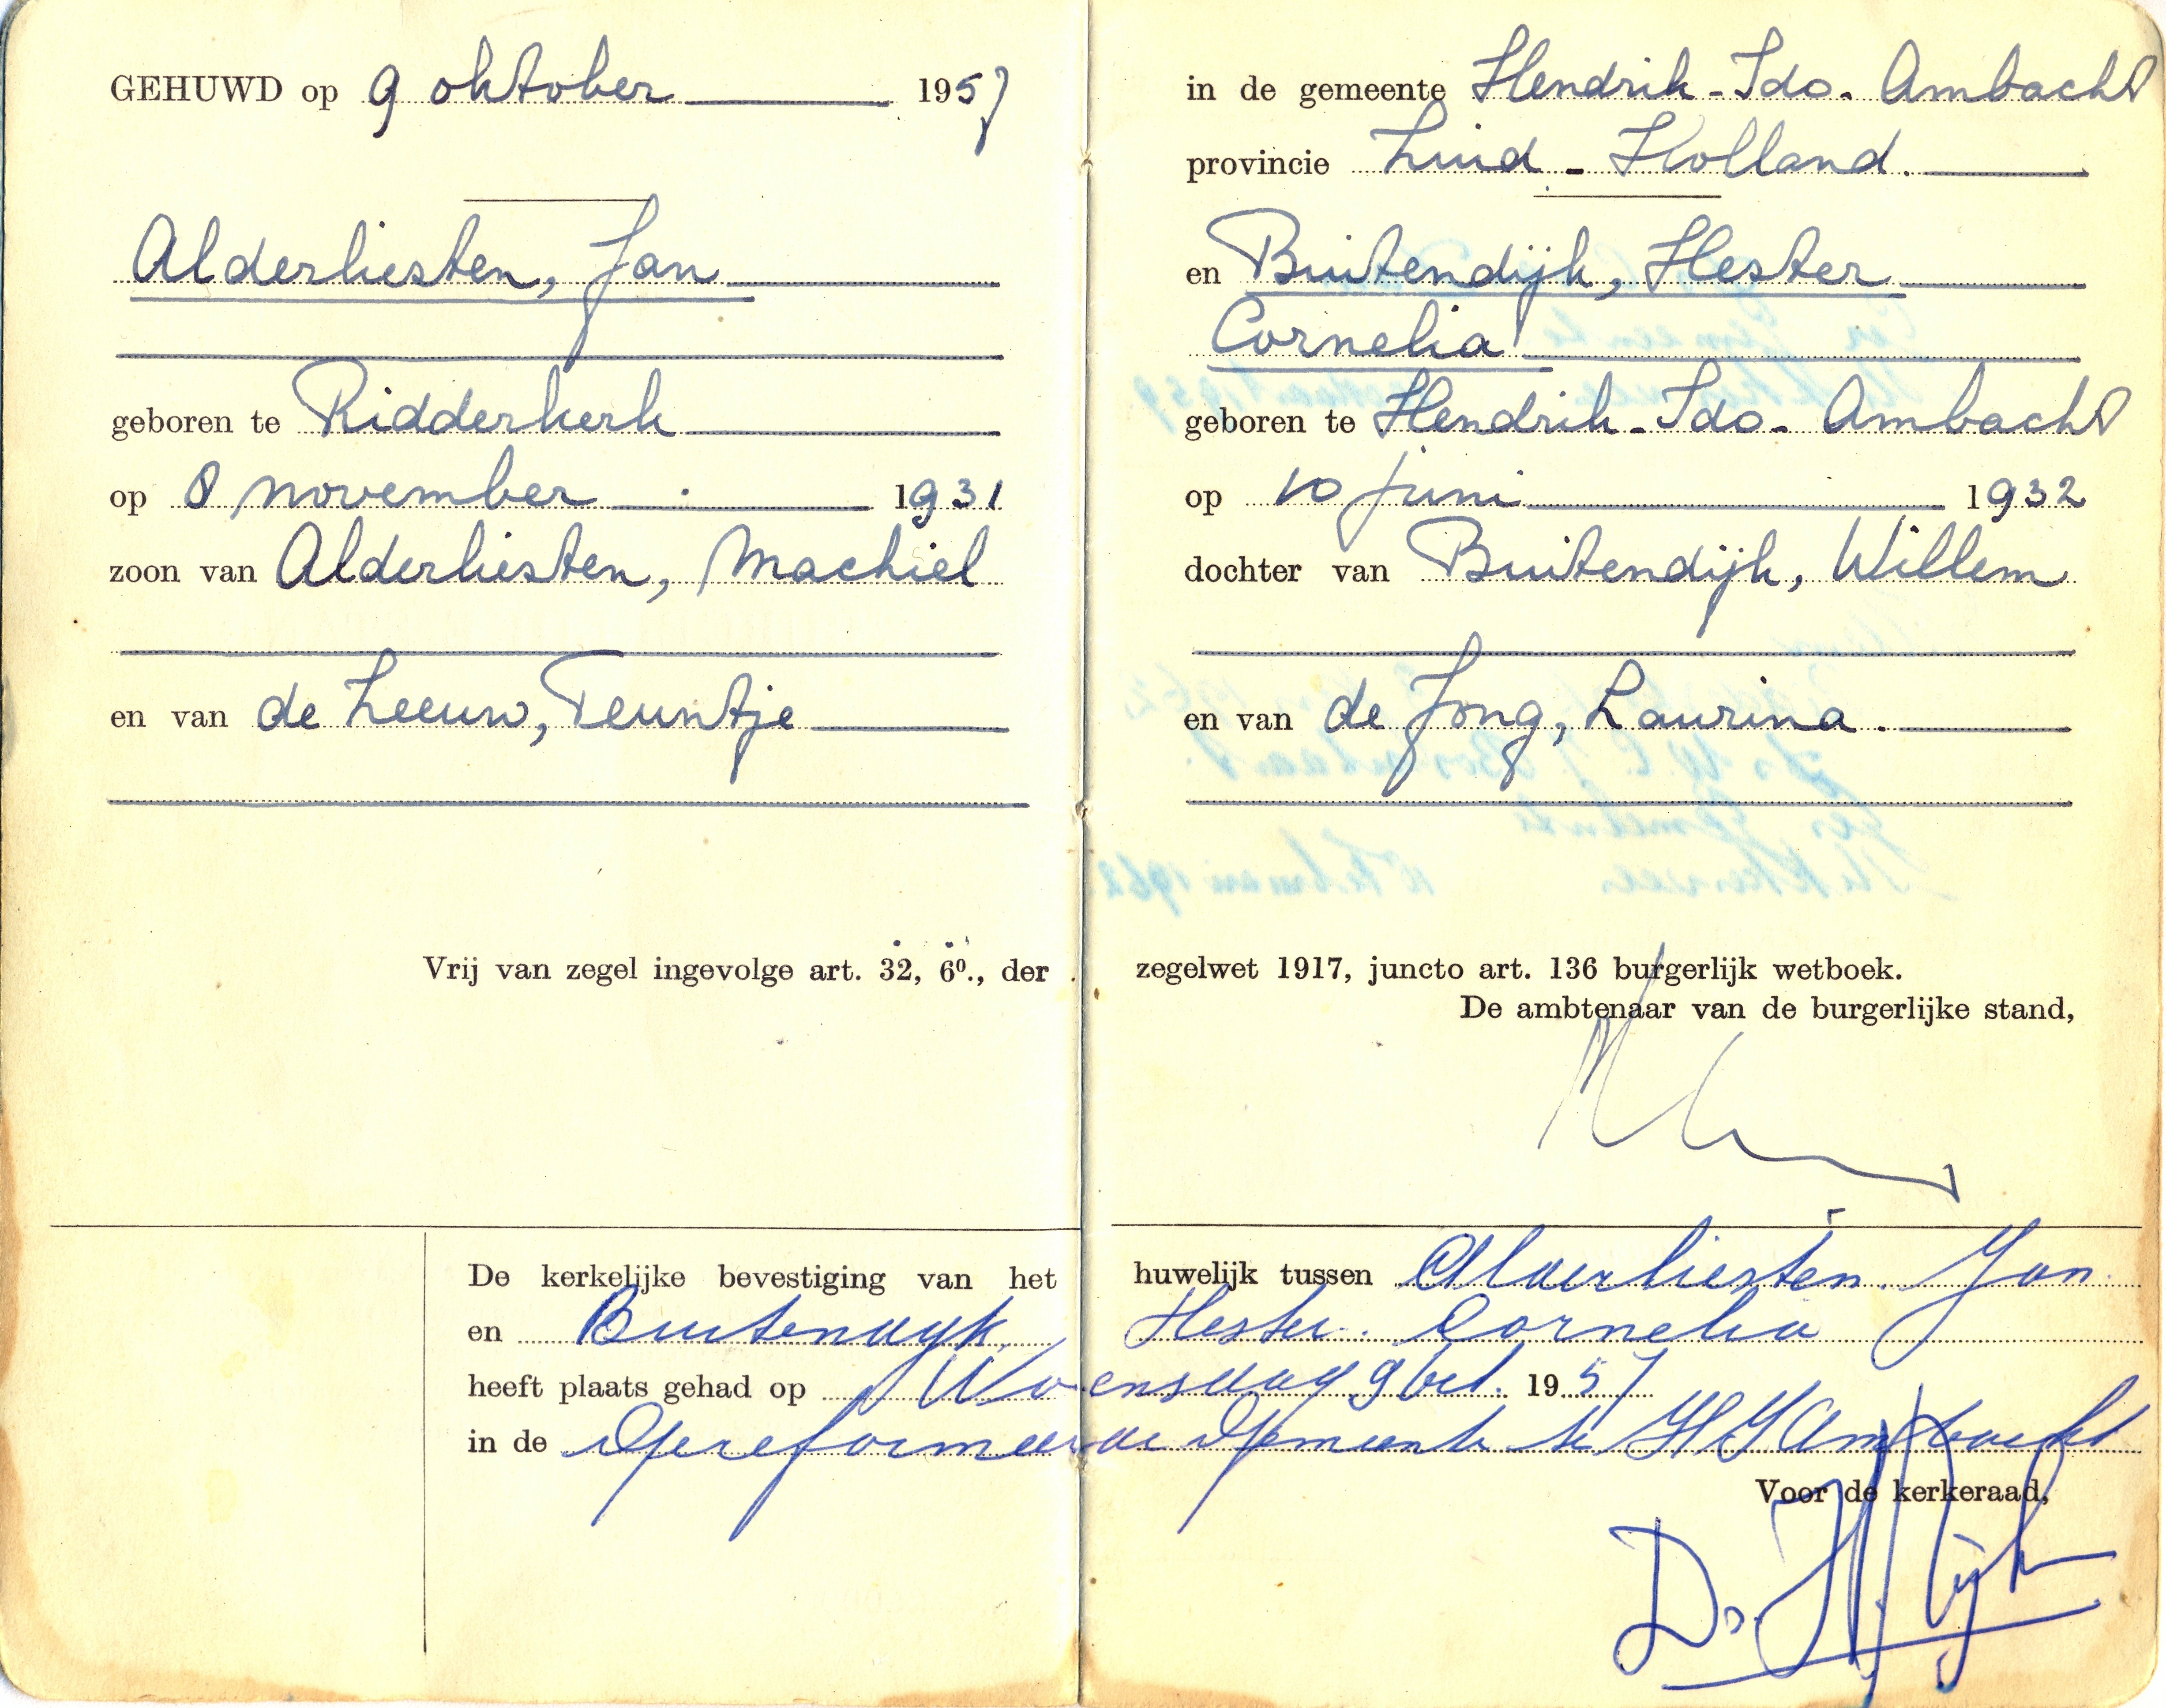 GEHUWD op 9 oktober 1957
Alderliesten, Jan
geboren te Ridderkerk
op 8 november 1931
zoon van Alderliesten, Machiel
en van de Leeuw, Teuntje
in de gemeente Hendrik-Ido-Ambacht
provincie Zuid-Holland.
en Buitendijk, Hester
Cornelia
geboren te Hendrik-Ido-Ambacht
op 10 juni 1932
dochter van Buitendijk, Willem
en van de Jong, Laurina.
Vrij van zegel ingevolge art. 32, 6º., der zegelwet 1917, juncto art. 136 burgerlijk wetboek.
De ambtenaar van de burgerlijke stand,
De kerkelijke bevestiging van het huwelijk tussen Alderliesten. Jan
en Buitendijk Hester. Cornelia
heeft plaats gehad op Woensdag 9 Oct. 1957
in de Gereformeerde Gemeente te H I Ambacht
Voor de kerkeraad,
Ds.